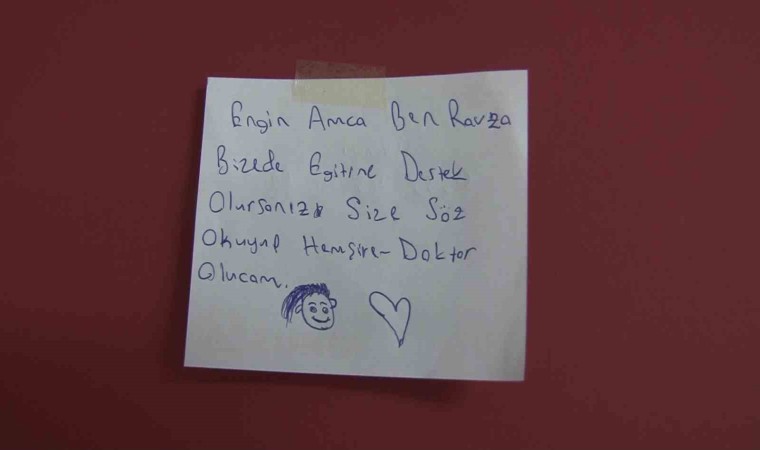 Engin Amca Ben Ravza
Bizede Egitime Destek
Olursanız Size Söz
Okuyup Hemşire-Doktor
Olucam.